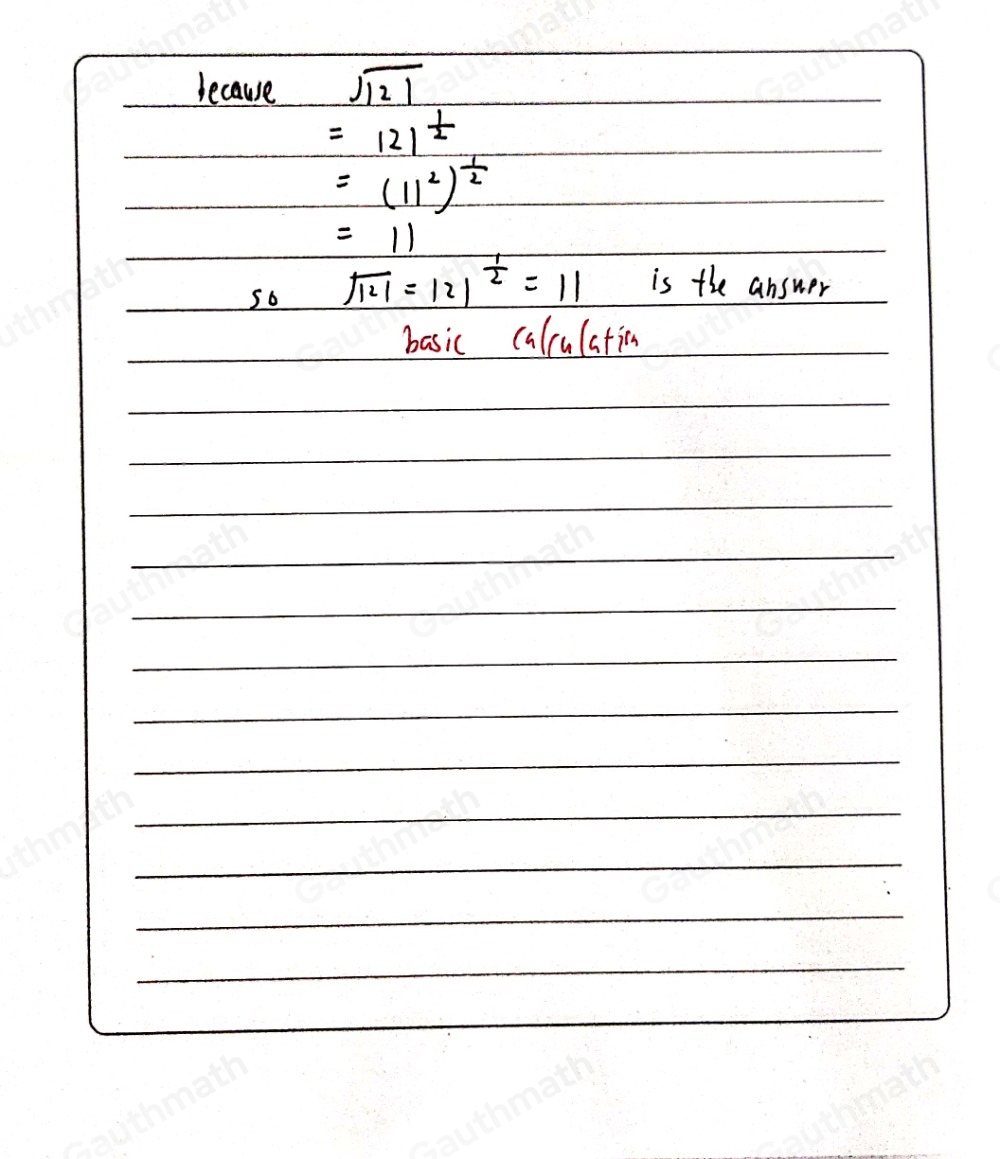 because √121
= 121^(1/2)
= (11²)^(1/2)
= 11
so √121 = 121^(1/2) = 11 is the answer
basic calculation
Gauthmath